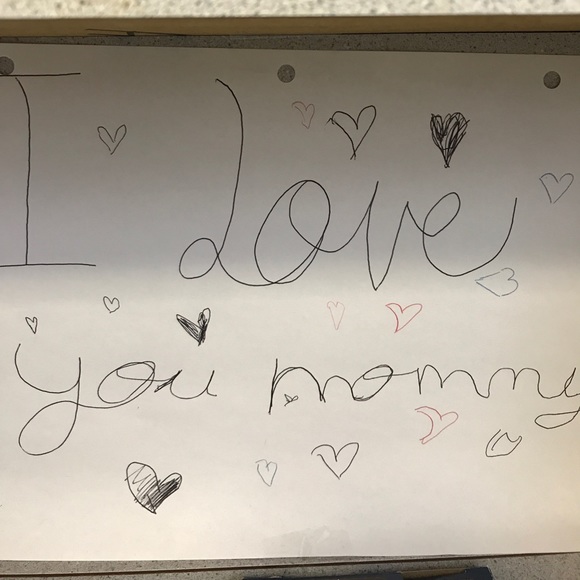 I Love
you mommy